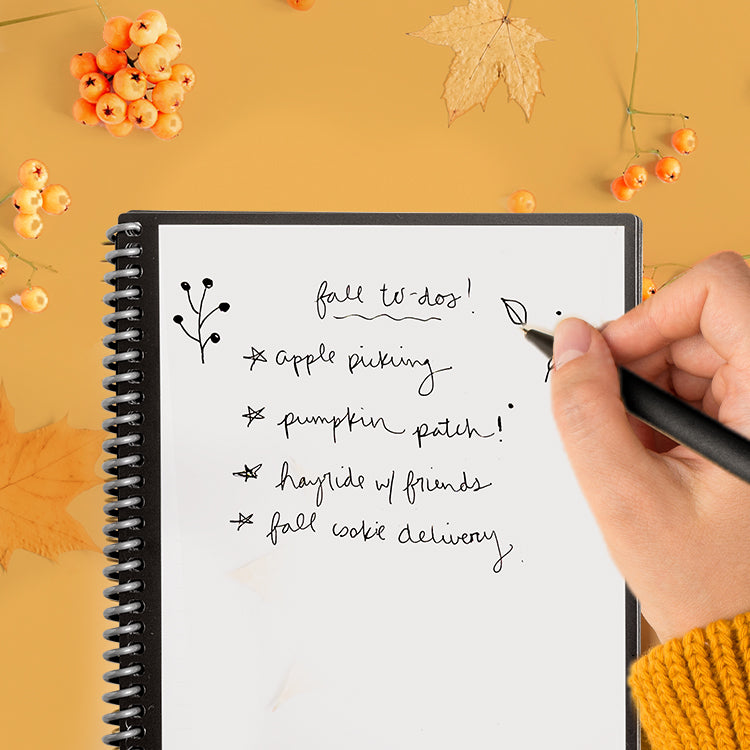 fall to-dos!
☆ apple picking
☆ pumpkin patch!
☆ hayride w/ friends
☆ fall cookie delivery